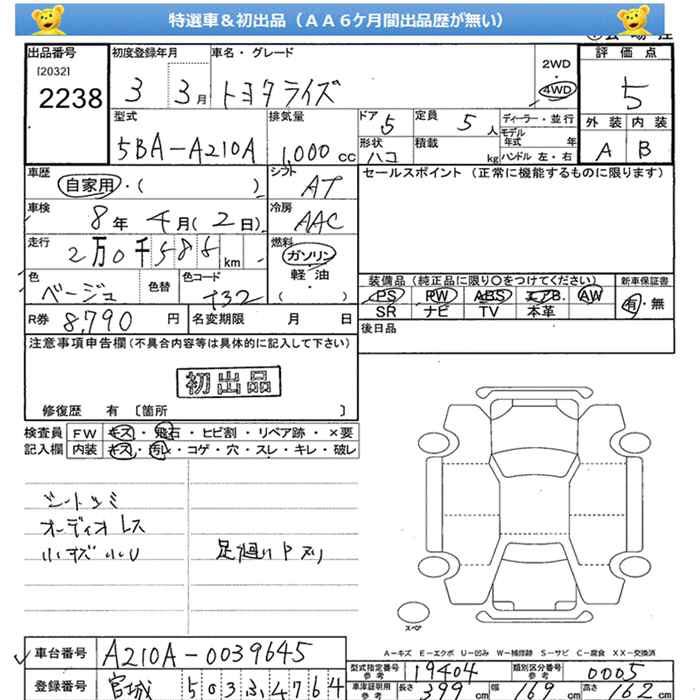 特選車&初出品（ＡＡ６ケ月間出品歴が無い）
出品番号 初度登録年月 車名・グレード 評価点
[2032] 2WD
2238 3 3月 トヨタライズ 4WD 5
型式 排気量 ドア 5 定員 5人 ディーラー・並行 外装 内装
5BA-A210A 1,000cc 形状 ハコ 積載 kg モデル年式 年 A B
ハンドル 左・右
車歴 シフト セールスポイント（正常に機能するものに限ります）
自家用・( ) AT
車検 冷房
8年 4月(2日) AAC
走行 燃料
2万0千586km ガソリン
軽油
( )
色 色替 色コード 装備品（純正品に限り○をつけてください） 新車保証書
ベージュ T32 PS PW ABS エアB. AW 有・無
SR ナビ TV 本革
R券 8,790円 名変期限 月 日 後日品
注意事項申告欄(不具合内容等は具体的に記入して下さい)
初出品
修復歴 有 〔箇所 〕
検査員 FW キズ・飛石・ヒビ割・リペア跡・×要
記入欄 内装 キズ・汚レ・コゲ・穴・スレ・キレ・破レ
シートシミ
オーディオレス
小キズ小U 足廻り中サリ
スペア
A－キズ E－エクボ U－凹み W－補修跡 S－サビ C－腐食 XX－交換済
車台番号 A210A-0039645
型式指定番号 参考 19404 類別区分番号 参考 0005
登録番号 宮城 503ふ4764
車庫証明用 参考 長さ 399cm 幅 169cm 高さ 162cm